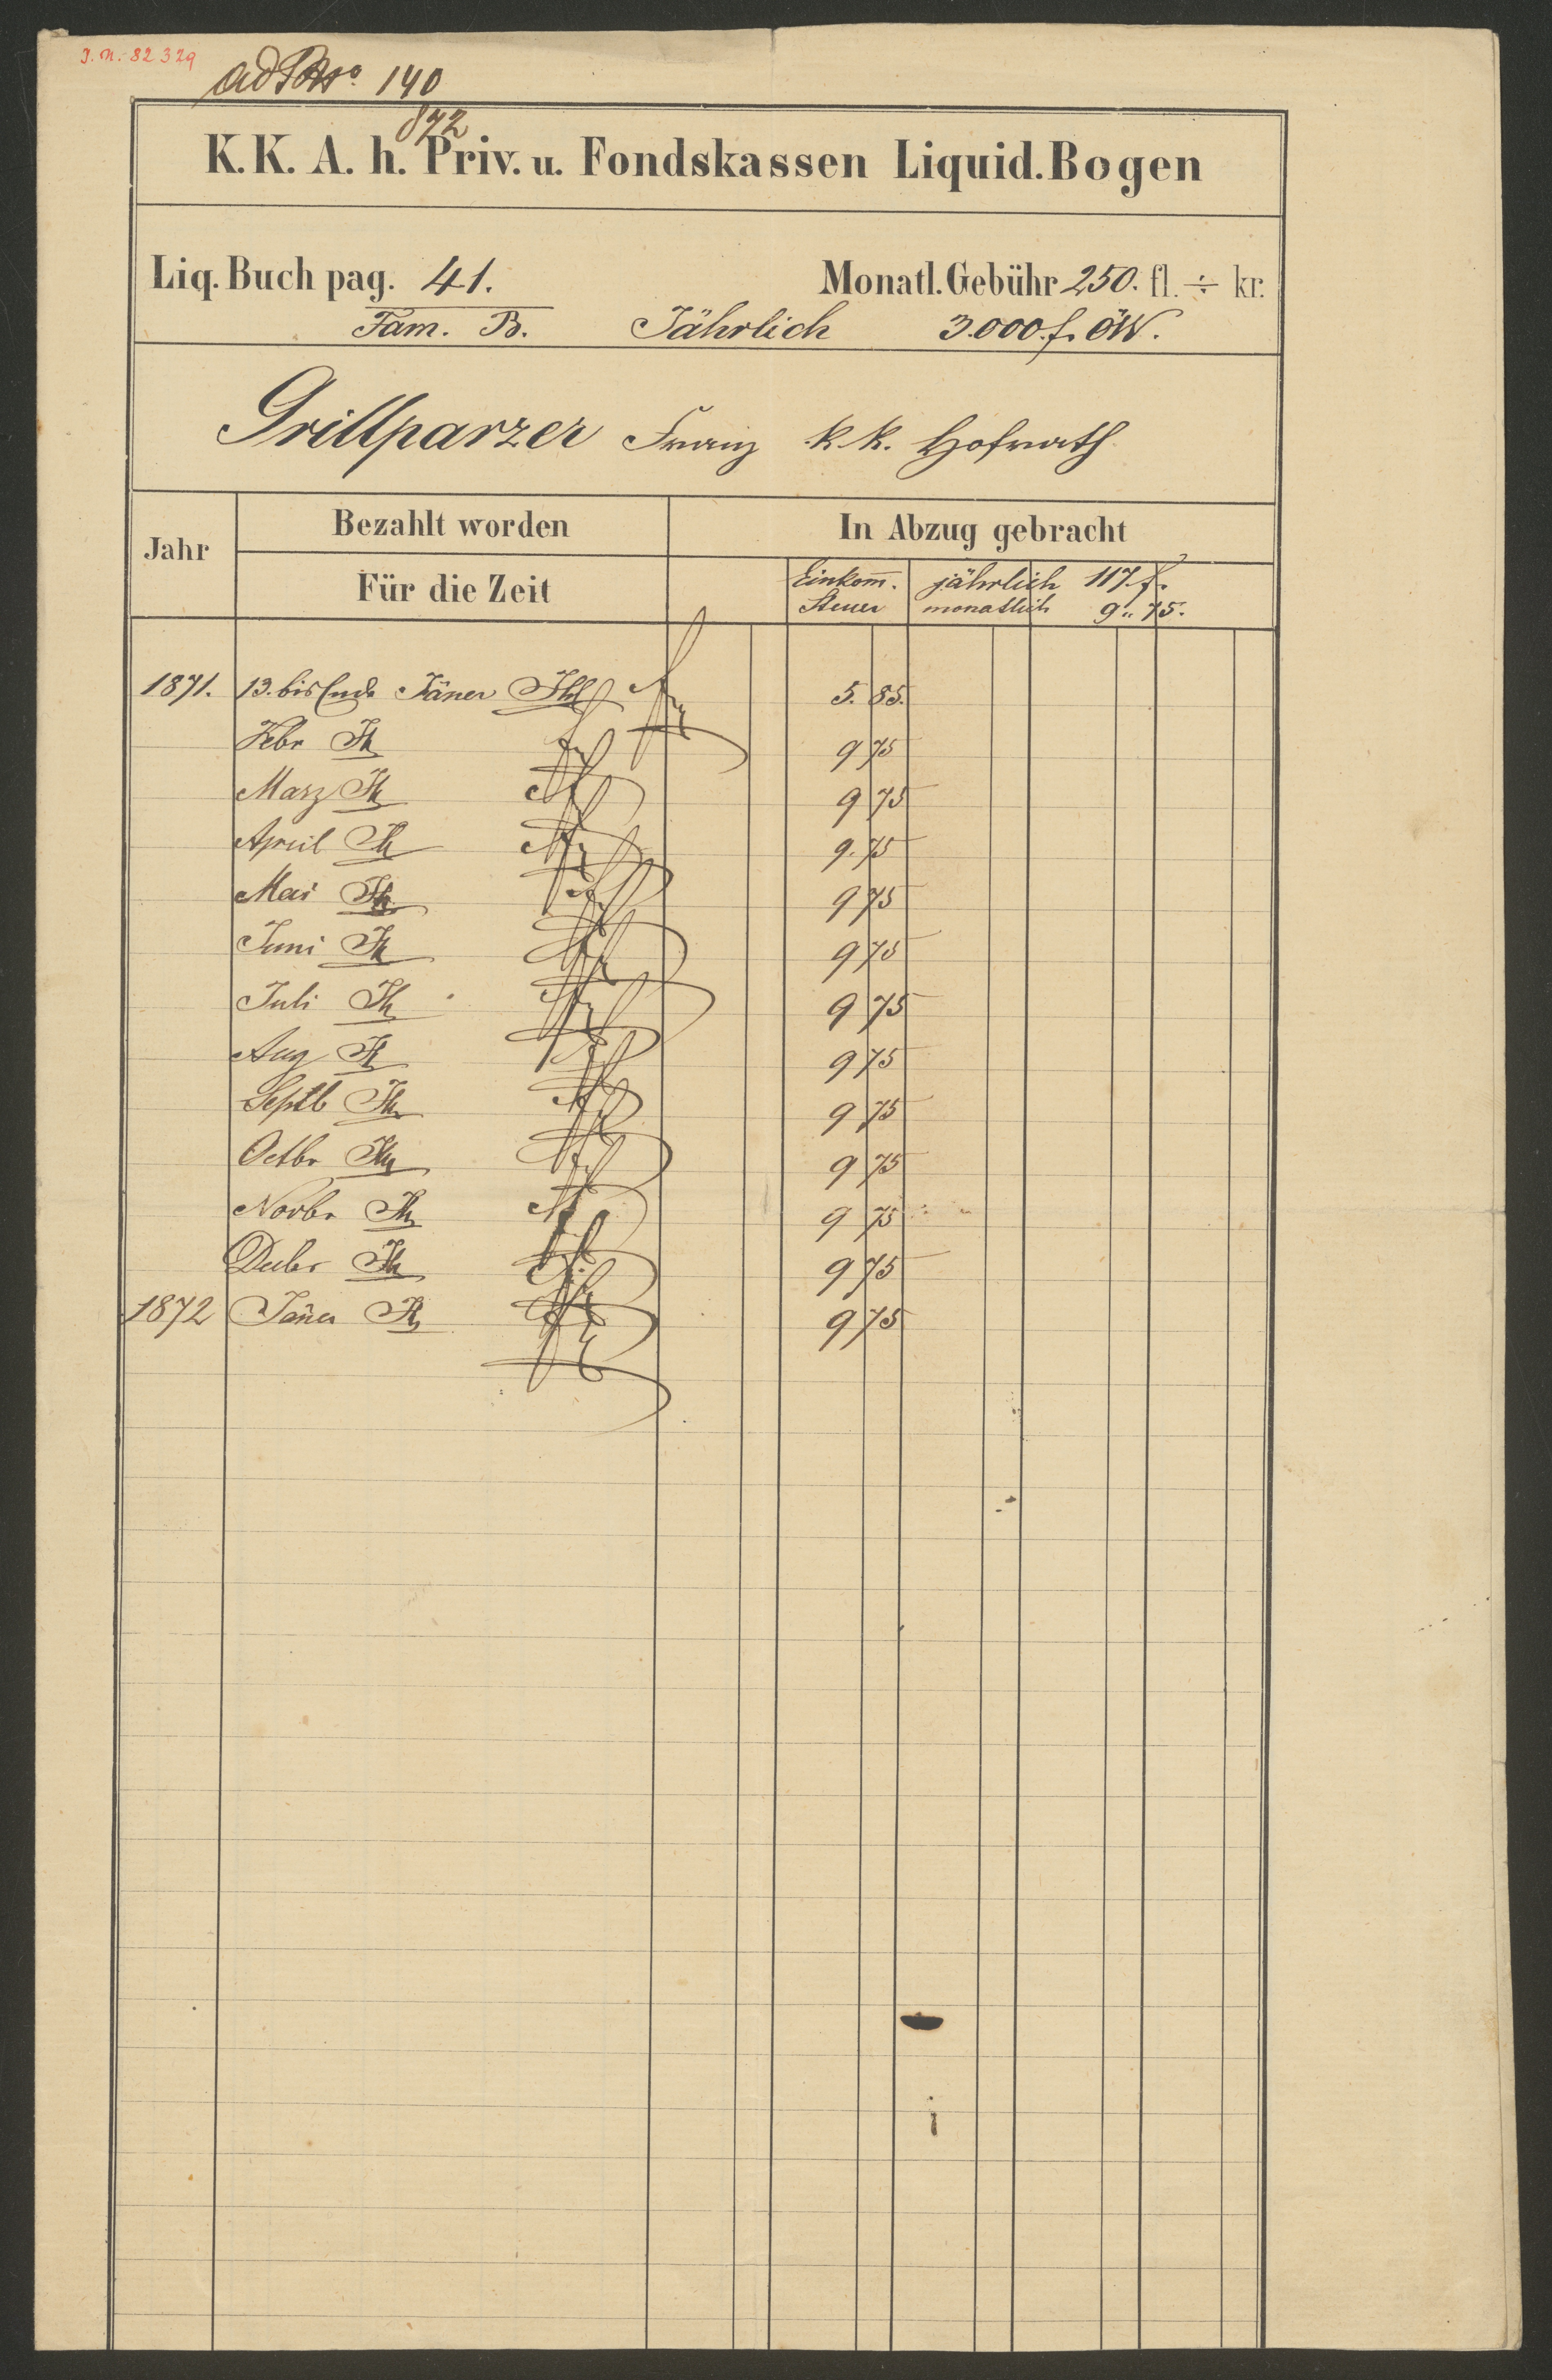 J.N. 82329
ad No. 140
872
K. K. A. h. Priv. u. Fondskassen Liquid. Bogen
Liq. Buch pag. 41. Monatl. Gebühr 250. fl. ÷ kr.
Fam. B. Jährlich 3.000 f. ÖW.
Grillparzer Franz k. k. Hofrath
Jahr Bezahlt worden In Abzug gebracht
Für die Zeit Einkom̅. jährlich 117 f.
Steuer monatlich 9 " 75.
1871. 13. bis Ende Jäner 5. 85.
Febr 9 75
März 9 75
April 9. 75
Mai 9 75
Juni 9 75
Juli 9 75
Aug 9 75
Septb 9 75
Octbr 9 75
Novbr 9 75
Decbr 9 75
1872 Jäner 9 75